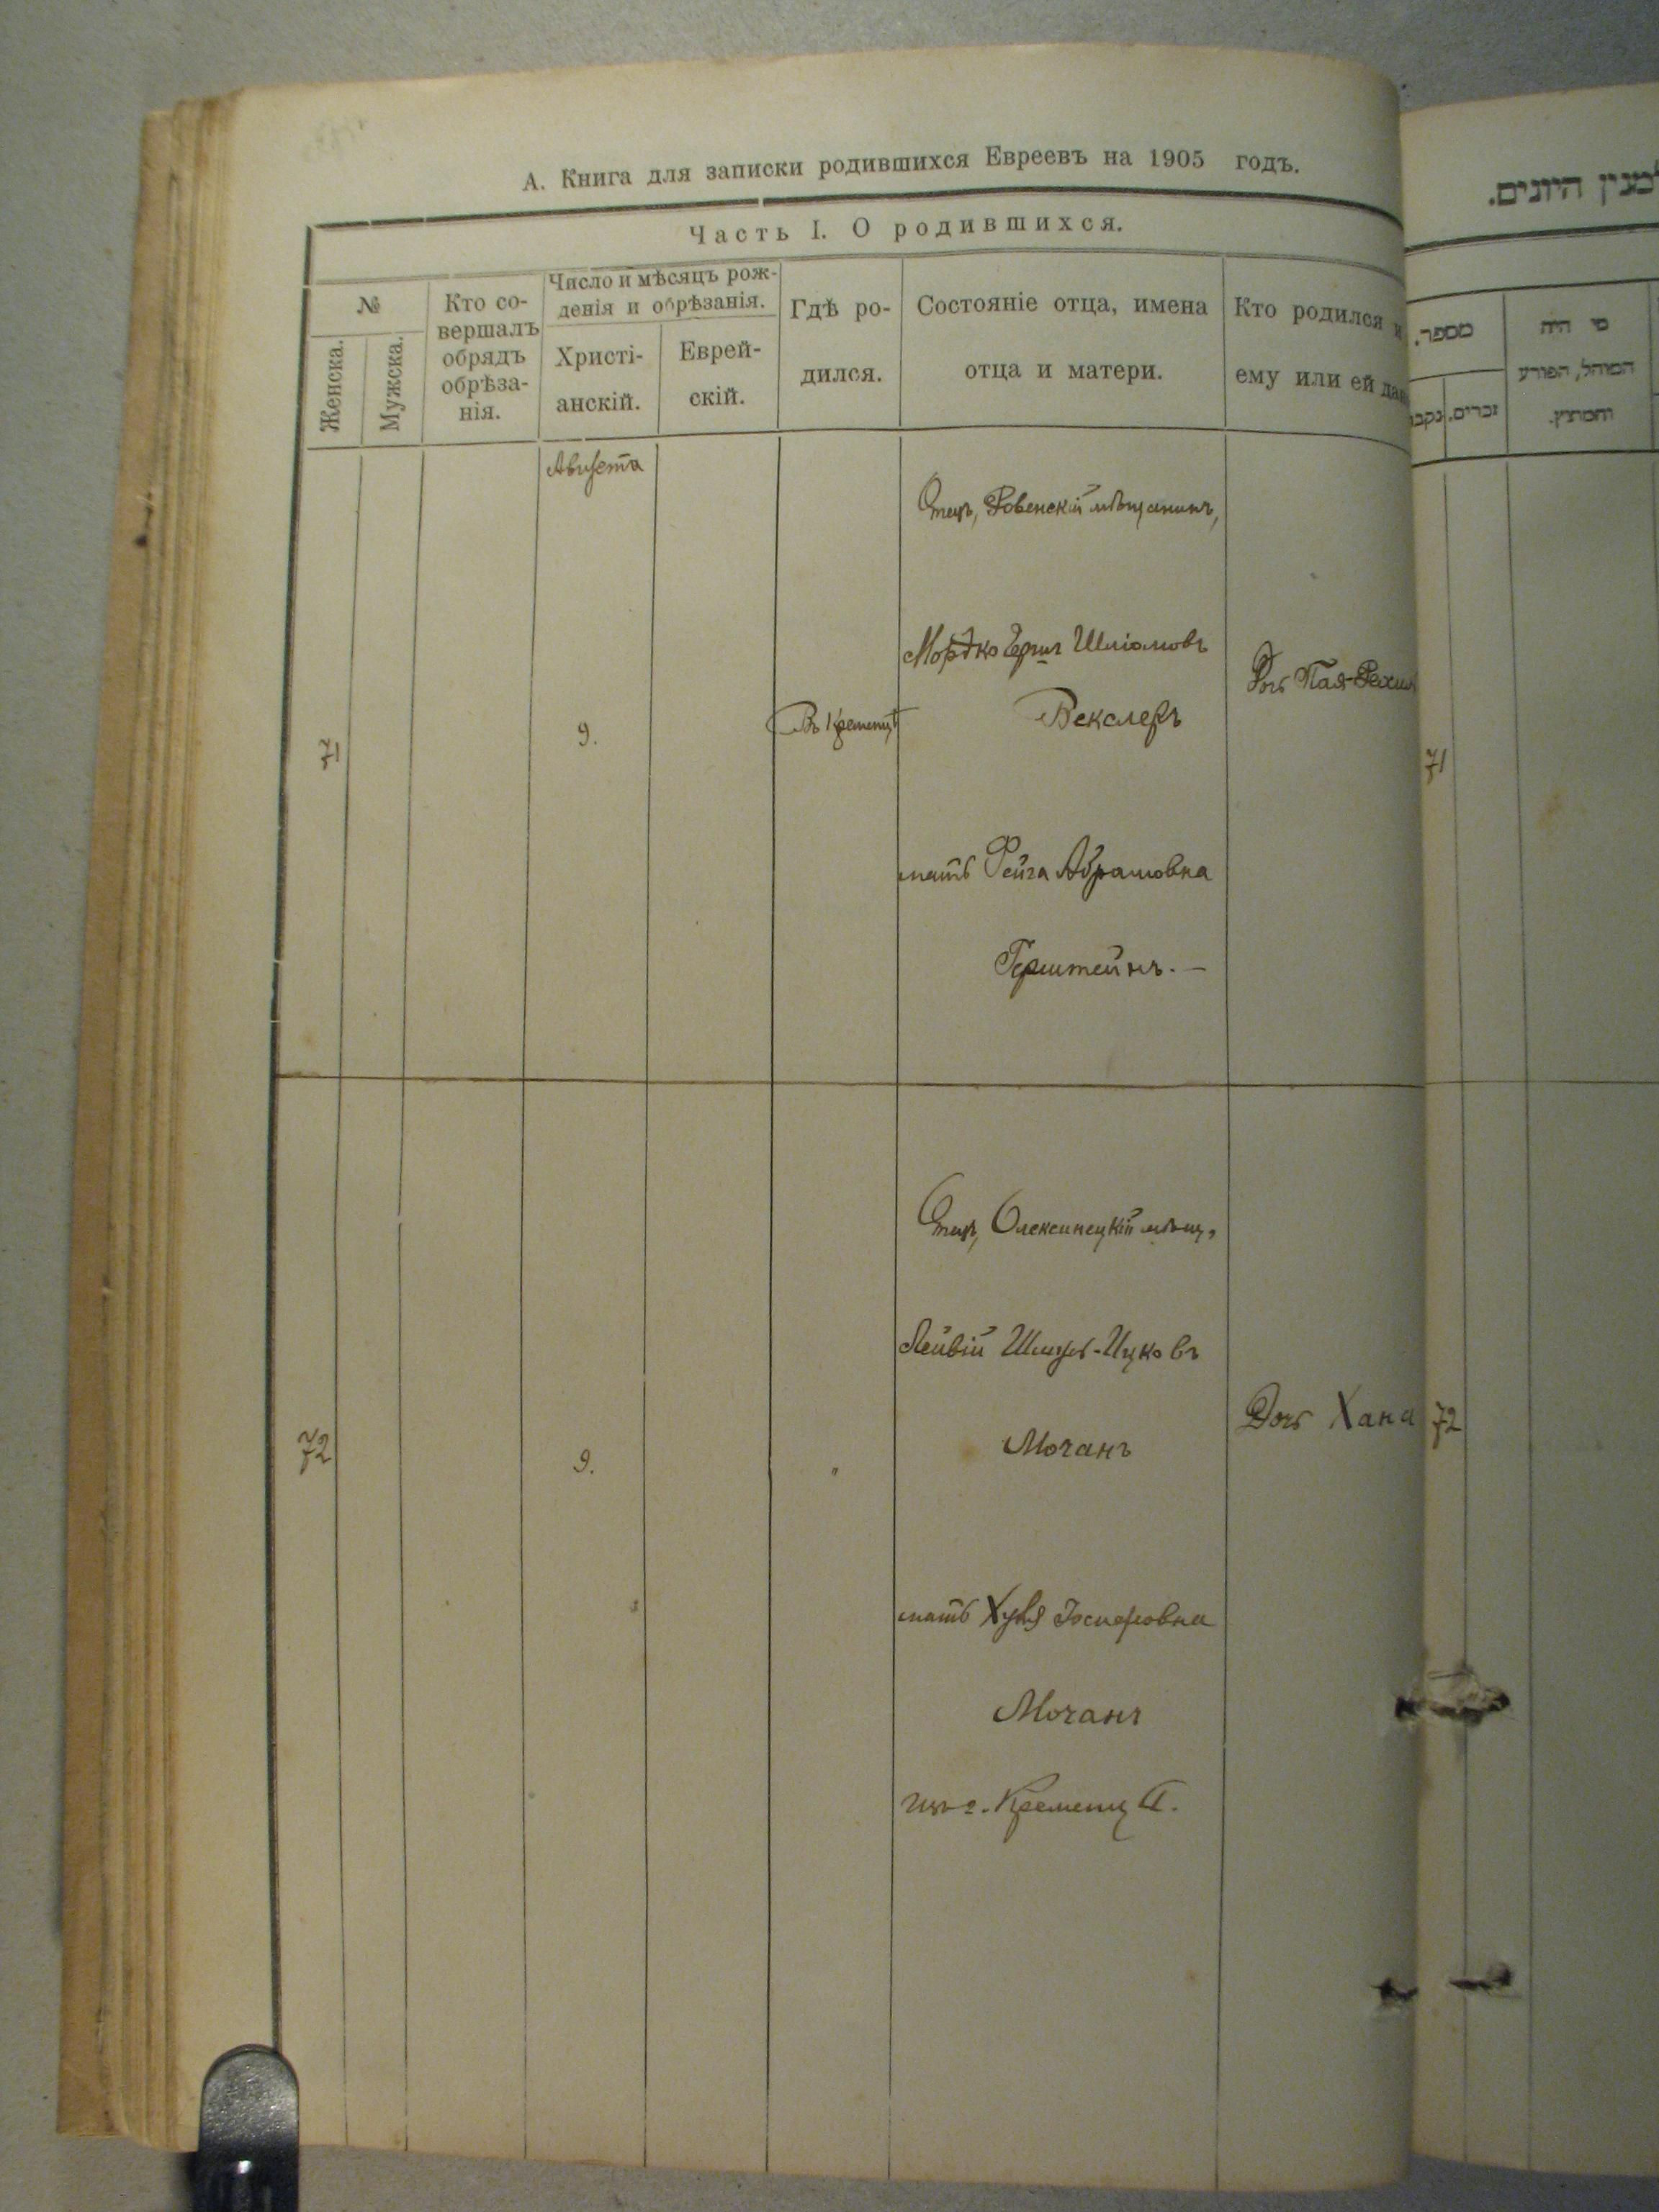 А. Книга для записки родившихся Евреевъ на 1905 годъ.
Часть I. О родившихся.
№
Женска.
Мужска.
Кто со-
вершалъ
обрядъ
обрѣза-
нія.
Число и мѣсяцъ рож-
денія и обрѣзанія.
Христі-
анскій.
Еврей-
скій.
Гдѣ ро-
дился.
Состояніе отца, имена
отца и матери.
Кто родился и
ему или ей дан
Августа
71
9.
Въ Кременцѣ
Отецъ, Ровенскій мѣщанинъ,
Мордко Герш Шліомовъ
Векслеръ
мать Фейга Абрамовна
Герштейнъ. —
Дочь Пая-Рехил
72
9.
"
Отецъ, Олексинецкій мѣщ.
Лейвій Шмуль-Ицковъ
Мочанъ
мать Хувя Іосифовна
Мочанъ
изъ г. Кременца.
Дочь Хана
למנין היונים.
מספר.
זכרים.
מי היה
המוהל, הפורע
והמוצץ.
71
72